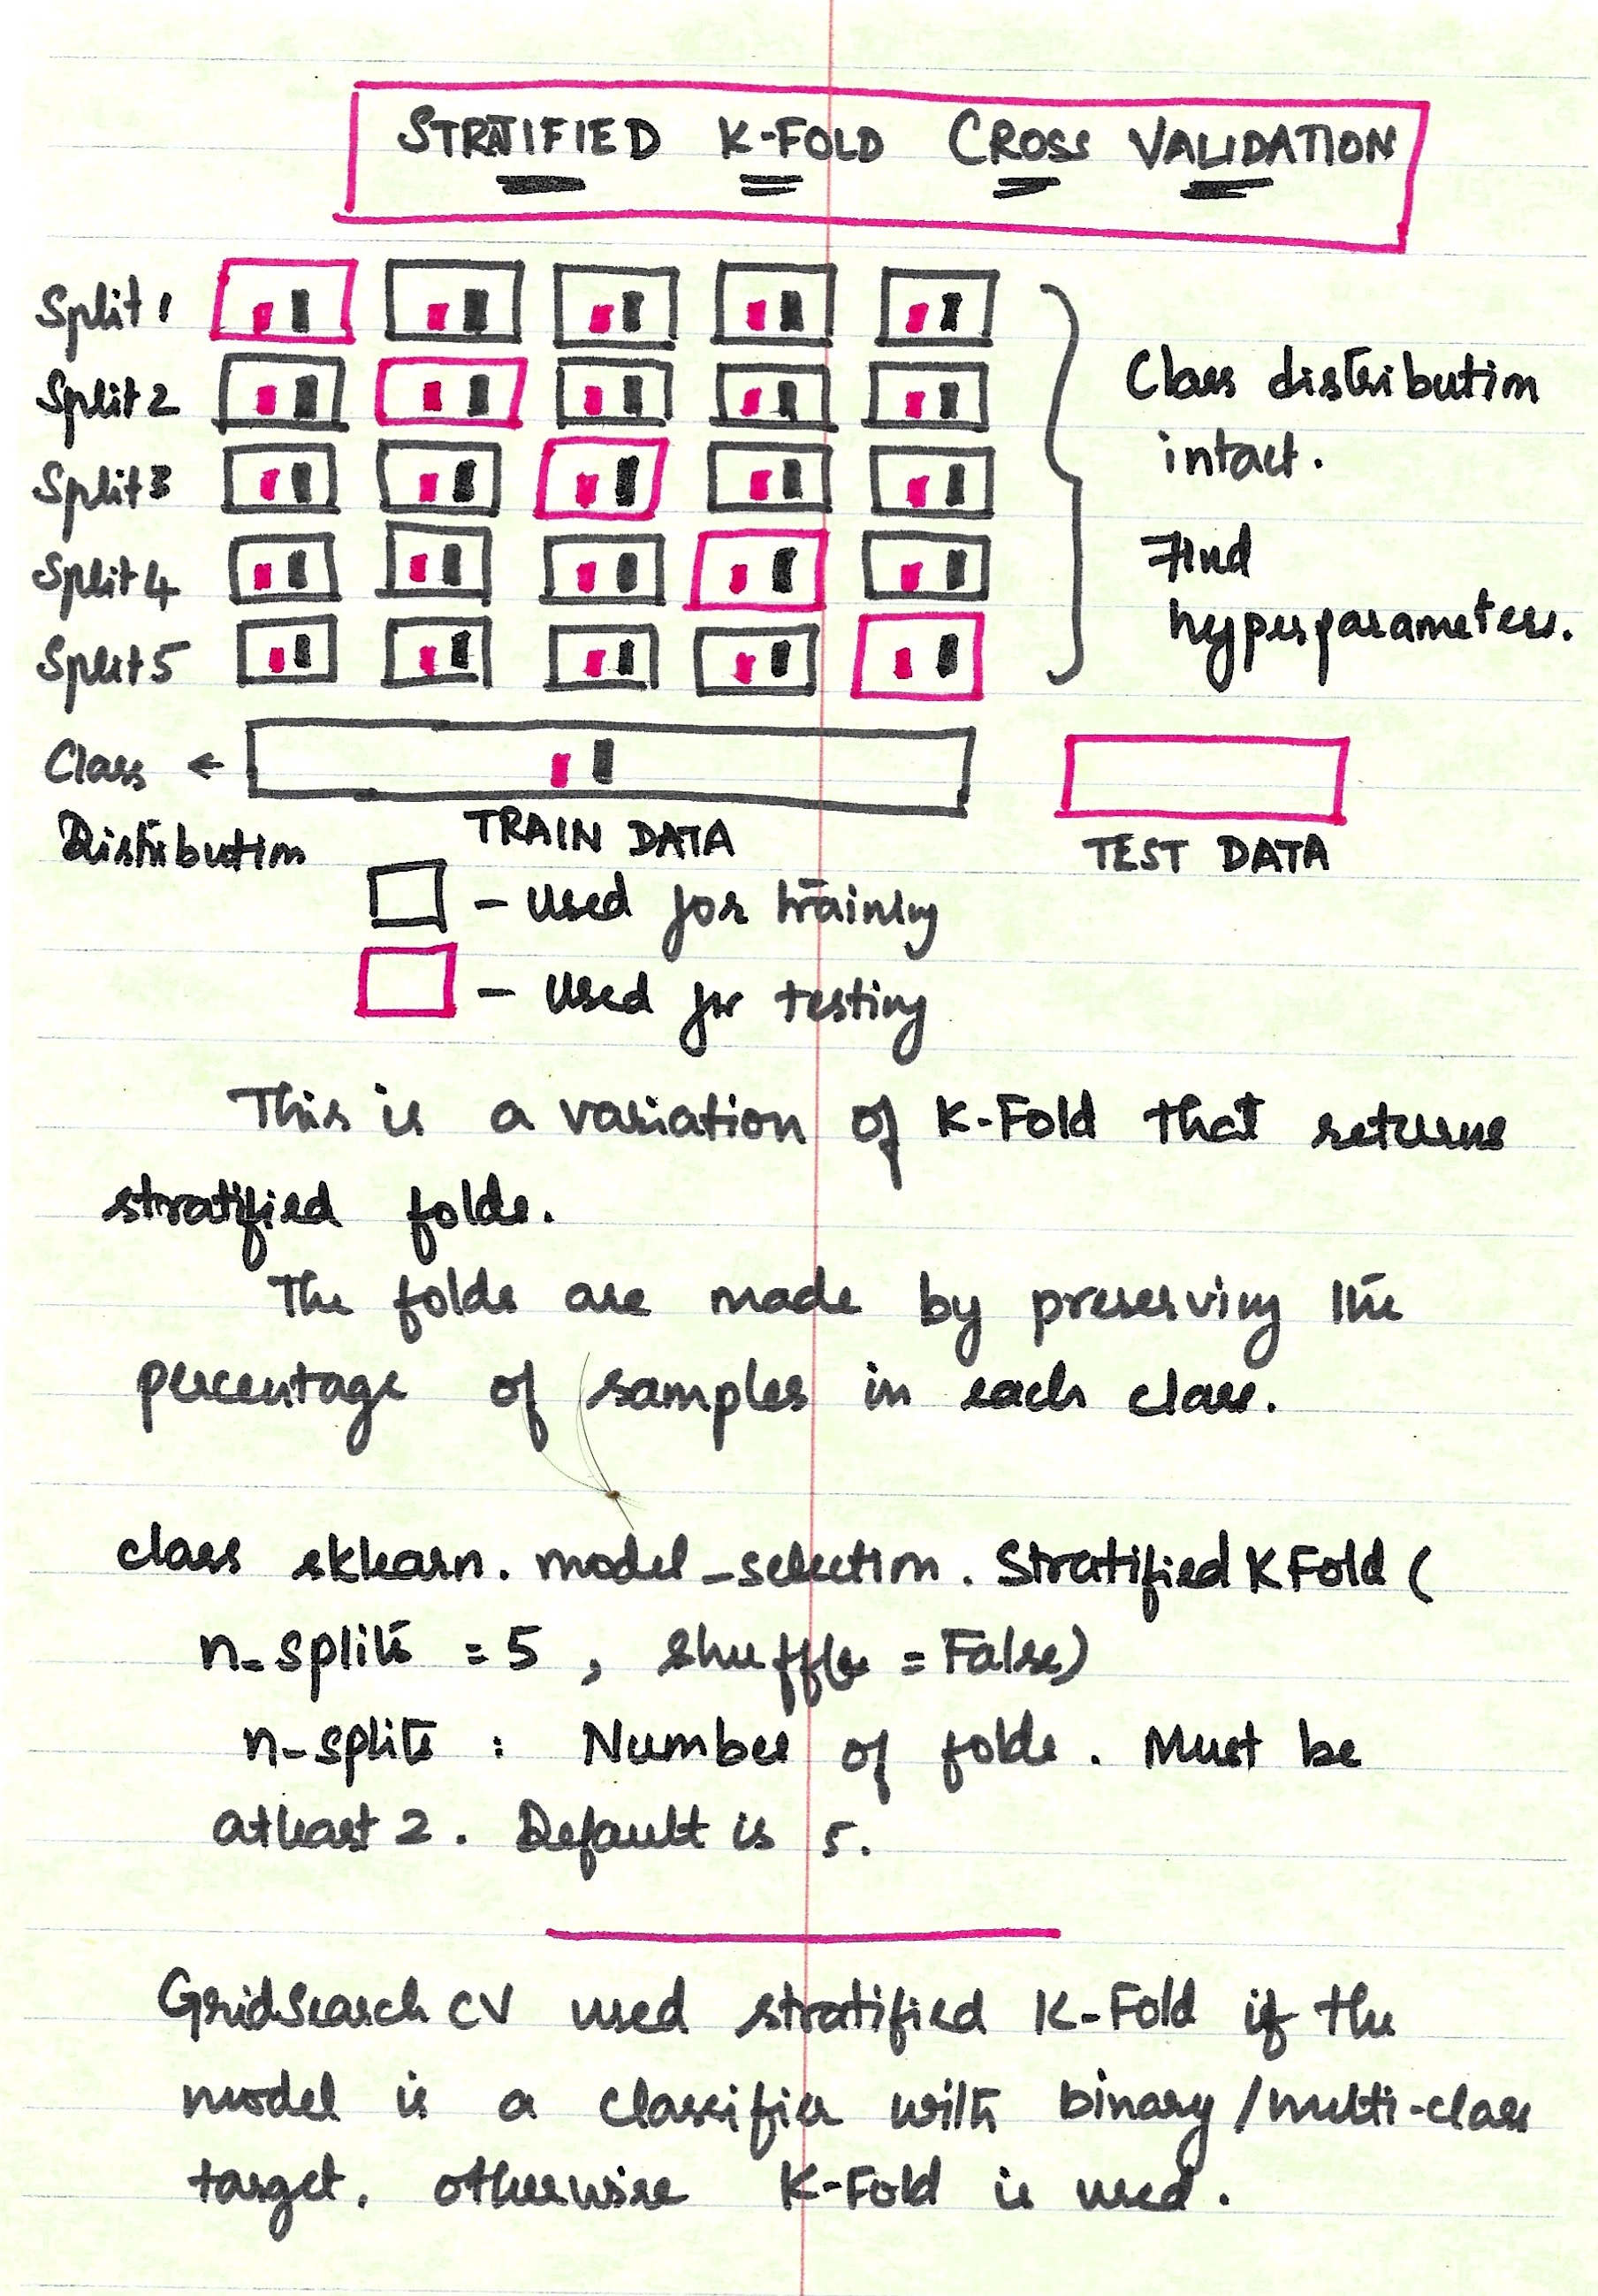 STRATIFIED K-FOLD CROSS VALIDATION
Split 1
Split 2
Split 3
Split 4
Split 5
Class distribution
intact.
Find
hyperparameters.
Class ←
Distribution
TRAIN DATA
TEST DATA
- Used for training
- Used for testing
This is a variation of K-Fold that returns
stratified folds.
The folds are made by preserving the
percentage of samples in each class.
class sklearn. model_selection. Stratified KFold (
n_splits = 5, shuffle = False)
n_splits : Number of folds. Must be
atleast 2. Default is 5.
GridSearch CV used stratified K-Fold if the
model is a classifier with binary/multi-class
target. otherwise K-Fold is used.